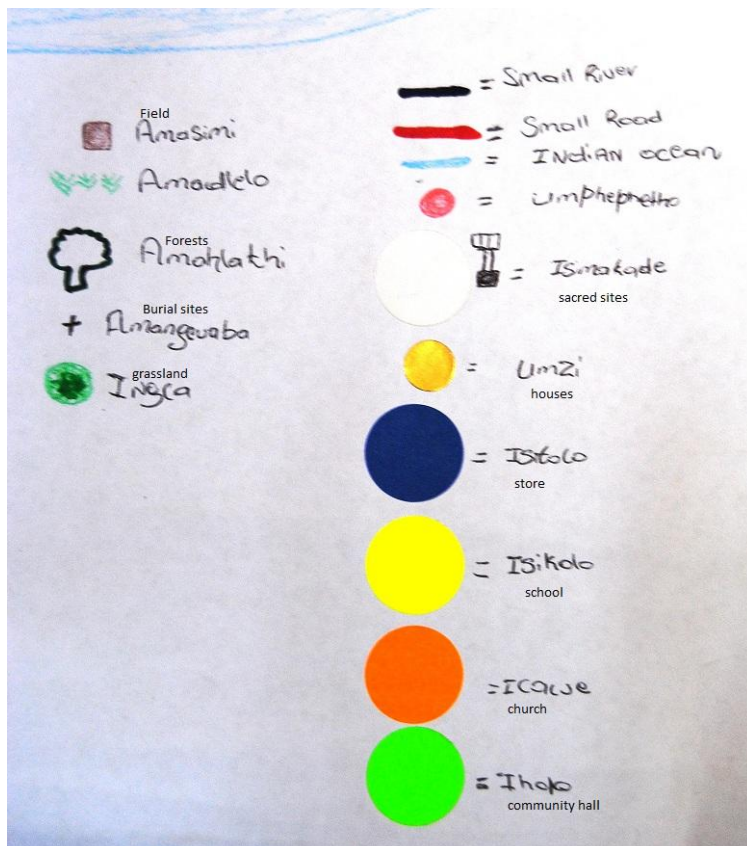 Field
Amasimi
Amadlelo
Forests
Amahlathi
Burial sites
+ Amangcwaba
grassland
Ingca
= Small River
= Small Road
= INDIAN OCEAN
= umphephetho
= Isimakade
sacred sites
= umzi
houses
= Isitolo
store
= Isikolo
school
= Icawe
church
= Iholo
community hall